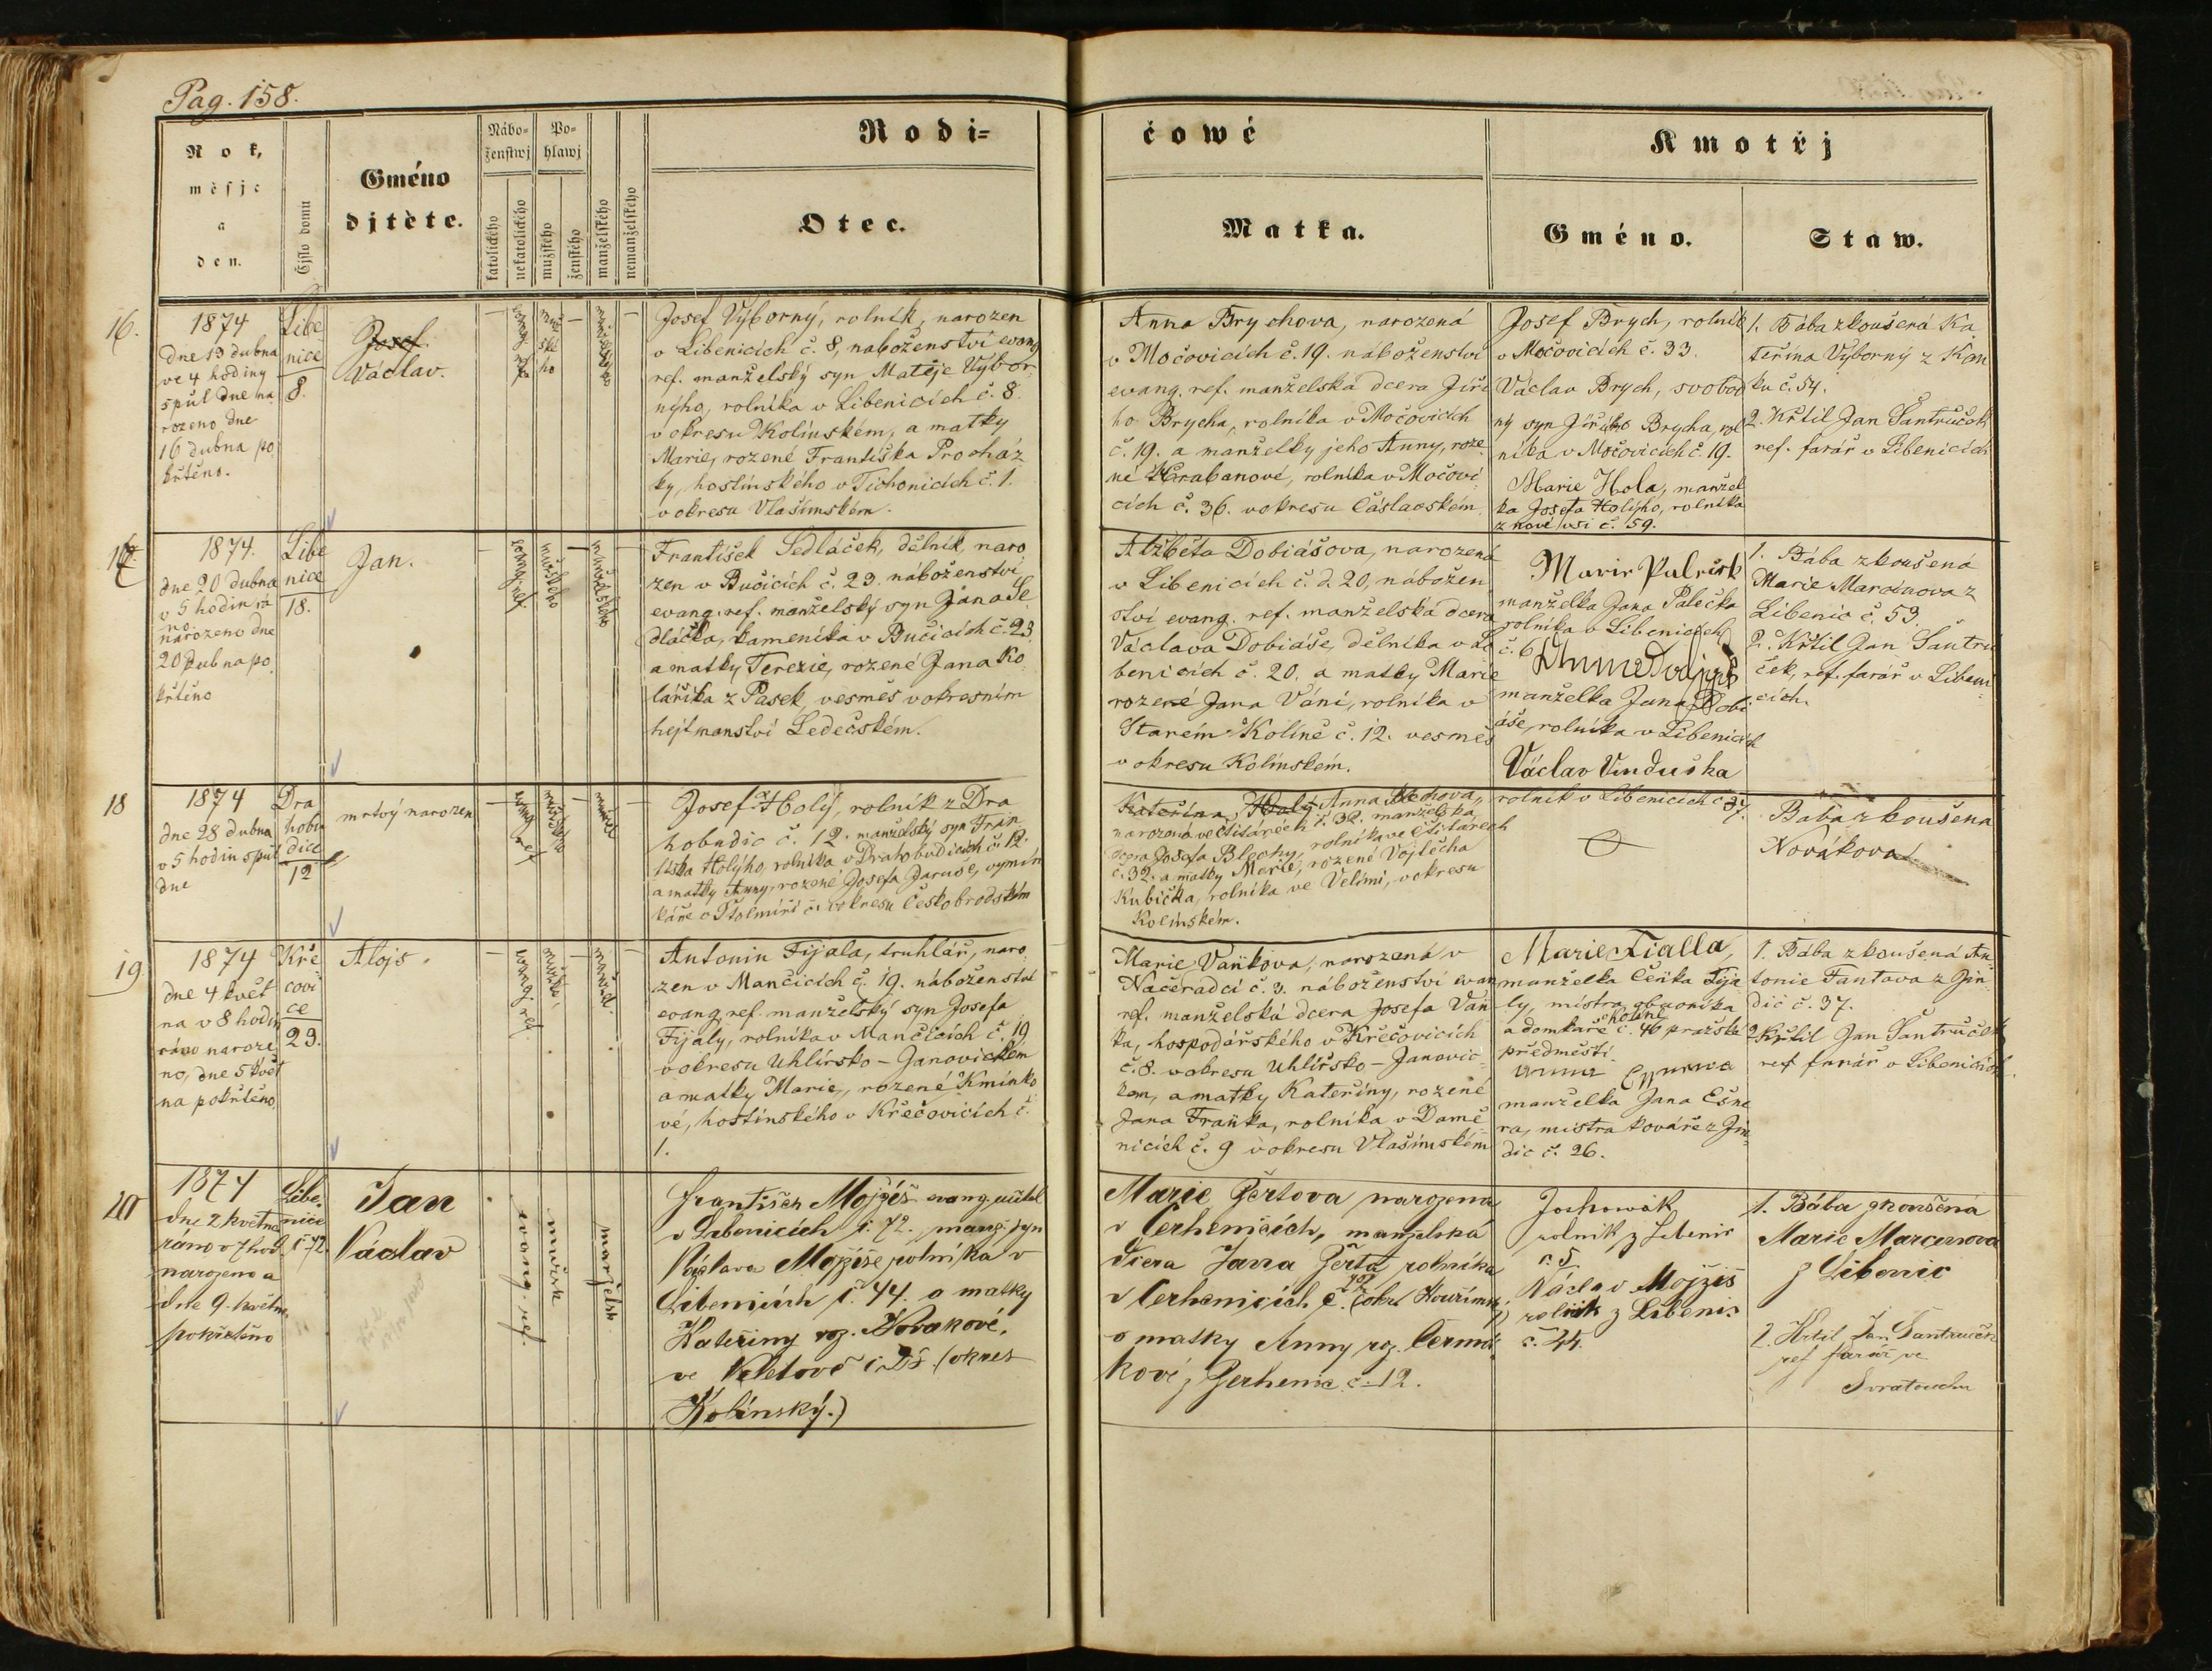 Pag. 158.
Rok,
měsjc
a
den.
Čjslo domu
Gméno
djtěte.
Nábo-
ženstwj
katolického
nekatolického
Po-
hlawj
mužského
ženského
manželského
nemanželského
Rodi-
čowé
Otec.
Matka.
Kmotřj
Gméno.
Staw.
16.
1874
dne 13 dubna
ve 4 hodiny
s půl dne na
rozeno, dne
16 dubna po
křtěno.
Libe
nice
8.
Josef.
Václav.
evang.
ref.
muž
ské
ho
manželského
Josef Výborný, rolník, narozen
v Libenicích č. 8, náboženství evang.
ref. manželský syn Matěje Výbor
ného, rolníka v Libenicích č. 8.
v okresu Kolínském, a matky
Marie, rozené Františka Procház
ky, hostinského v Tichonicích č. 1.
v okresu Vlašimském.
Anna Brychova, narozená
v Močovicích č. 19. náboženství
evang. ref. manželská dcera Jiří
ho Brycha, rolníka v Močovicích
č. 19. a manželky jeho Anny, roze
né Hrabanové, rolníka v Močovi
cích č. 36. v okresu Čáslavském.
Josef Brych, rolník
v Močovicích č. 33.
Václav Brych, svobod
ný syn Jiřího Brycha, rol
níka v Močovicích č. 19.
Marie Hola, manžel
ka Josefa Holýho, rolníka
z nové vsi č. 59.
1. Bába zkoušená Ka
teřina Výborný z Kan
ku č. 54.
2. Křtil Jan Šantrůček
ref. farář v Libenicích
17
1874.
dne 20 dubna
v 5 hodin rá
no.
narozeno dne
20 dubna po
křtěno
Libe
nice
18.
Jan.
evang. ref.
mužského
manželského
František Sedláček, dělník, naro
zen v Bučicích č. 23. náboženství
evang. ref. manželský syn Jana Se
dláčka, kameníka v Bučicích č. 23.
a matky Terezie, rozené Jana Ko
láříka z Pasek, vesměs v okresním
hejtmanství Ledečském.
Alžběta Dobiášova, narozená
v Libenicích č. d. 20, nábožen
ství evang. ref. manželská dcera
Václava Dobiáše, dělníka v Li
benicích č. 20. a matky Marie
rozené Jana Váni, rolníka v
Starém Kolíně č. 12. vesměs
v okresu Kolínském.
Marie Paleček
manželka Jana Palečka
rolníka v Libenicích
č. 6
manželka Jana Dobi
áše, rolníka v Libenicích
Václav Vinduška
rolník v Libenicích č. 37.
1. Bába zkoušená
Marie Marcanova z
Libenic č. 53.
2. Křtil Jan Šantrů
ček, ref. farář v Libeni
cích.
18
1874
dne 28 dubna
v 5 hodin s půl
dne
Dra
hobu
dice
12
mrtvý narozen
evang. ref.
mužského
manžel
Josef Holý, rolník z Dra
hobudic č. 12. manželský syn Fran
tiška Holýho, rolníka v Drahobudicích č. 12.
a matky Anny, rozené Josefa Jaruše, výmin
káře v Tholmíři č. v okresu Českobrodském
Kateřina Holý Anna Blechova,
narozená ve Čitárech č. 32. manželská
dcera Josefa Blechy, rolníka ve Čitárech
č. 32. a matky Marie, rozené Vojtěcha
Kubička, rolníka ve Velimi, v okresu
Kolínském.
Bába zkoušená
Novákova
19
1874
dne 4 květ
na v 8 hodin
ráno naroze
no, dne 5 květ
na pokřtěno.
Kře
čovi
ce
23.
Alojs.
evang. ref.
mužské.
manžel.
Antonín Fijala, truhlář, naro
zen v Mančicích č. 19. náboženství
evang. ref. manželský syn Josefa
Fijaly, rolníka v Mančicích č. 19
v okresu Uhlířsko-Janovickém
a matky Marie, rozené Kmínko
vé, hostinského v Křečovicích č.
1.
Marie Vaňkova, narozená v
Naceradci č. 3. náboženství evan
ref. manželská dcera Josefa Vaň
ka, hospodářského v Křečovicích
č. 8. v okresu Uhlířsko-Janovic
kém, a matky Kateřiny, rozené
Jana Fraňka, rolníka v Damě
nicích č. 9 v okresu Vlašimském
Marie Fialla,
manželka Čeňka Fija
ly, mistra obuvníka
a domkáře č. 46 pražské
Kolíně
předměstí.
manželka Jana Ešne
ra, mistra kováře z Jin
dic č. 26.
1. Bába zkoušená An
tonie Fantova z Jin
dic č. 37.
2. Křtil Jan Šantrůček
ref. farář v Libenicích.
20
1874
dne 7 května
ráno v 7 hod.
narozeno a
dne 9. května
pokřtěno
Libe
nice
č 72.
Jan
Václav
evang. ref.
mužsk
manželsk
František Mojžíš evang. učitel
v Libenicích č. 72. manž. syn
Václava Mojžíše rolníka v
Libenicích č. 44. a matky
Kateřiny roz. Novákové,
ve Voletově
(okres
Kolínský.)
Marie Žertova narozena
v Cerhenicích, manželská
dcera Jana Žerta rolníka
v Cerhenicích č. (okr. Kouřimsk.)
a matky Anny roz. Čermá
kové z Cerhenic č. 12.
Jos. Nowák
rolník z Libenic
č. 5.
Václav Mojžíš
rolník z Libenic
č. 44.
1. Bába zkoušená
Marie Marcanova
z Libenic
2. Křtil Jan Šantrůček
ref farář ve
Svratouchu